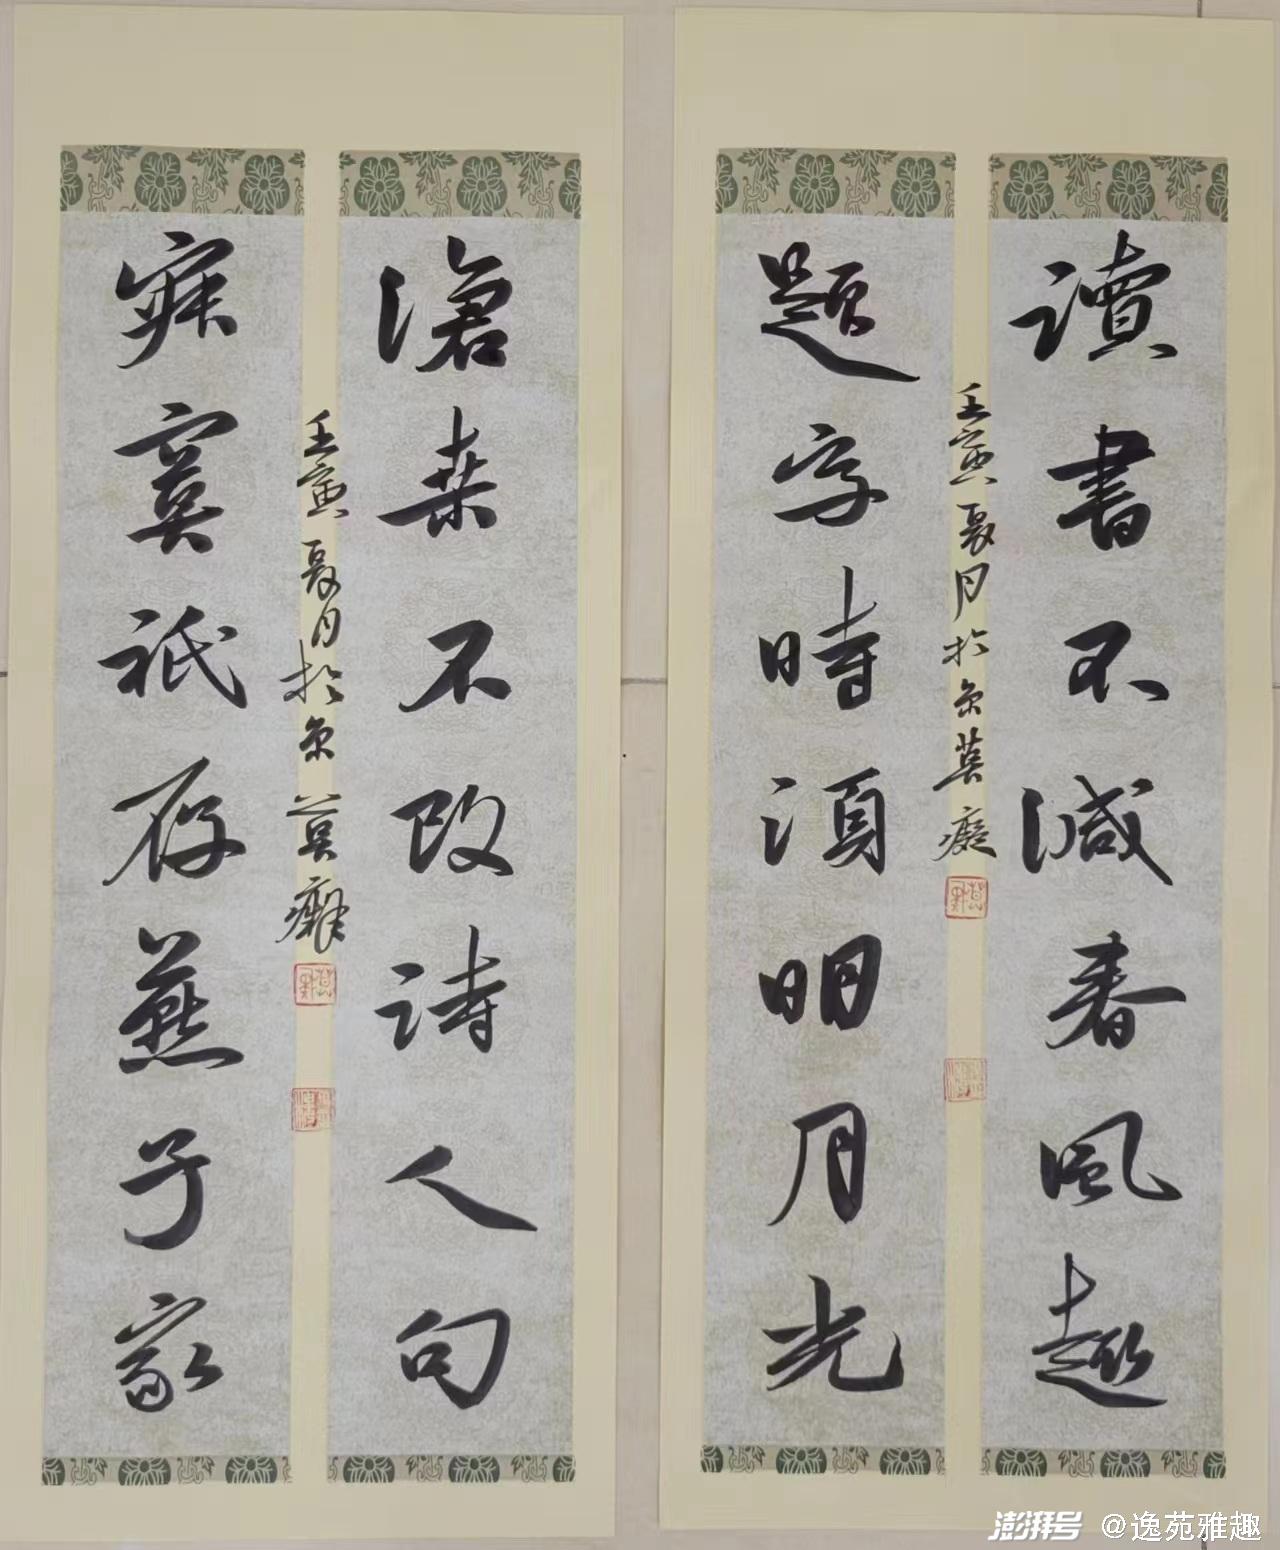 讀書不減春風趣
題字時須明月光
壬寅夏月於京莫癡
滄桑不改詩人句
寂寞祇存燕子家
壬寅夏月於京莫癡
澎湃号 @逸苑雅趣